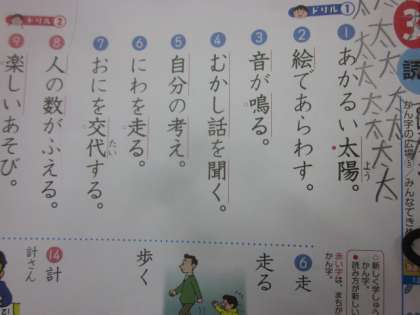 3
読
かん字の広場③/みんなできめ
太太太太太太太太
ドリル1
1 あかるい太陽。
よう
2 絵であらわす。
3 音が鳴る。
4 むかし話を聞く。
5 自分の考え。
6 にわを走る。
7 おにを交代する。
たい
8 人の数がふえる。
ドリル2
9 楽しいあそび。
○新しく学しゅう
かん字。
読み方が新しい
かん字。
赤い字は、まちが
6 走
走る
歩く
14 計
計さん